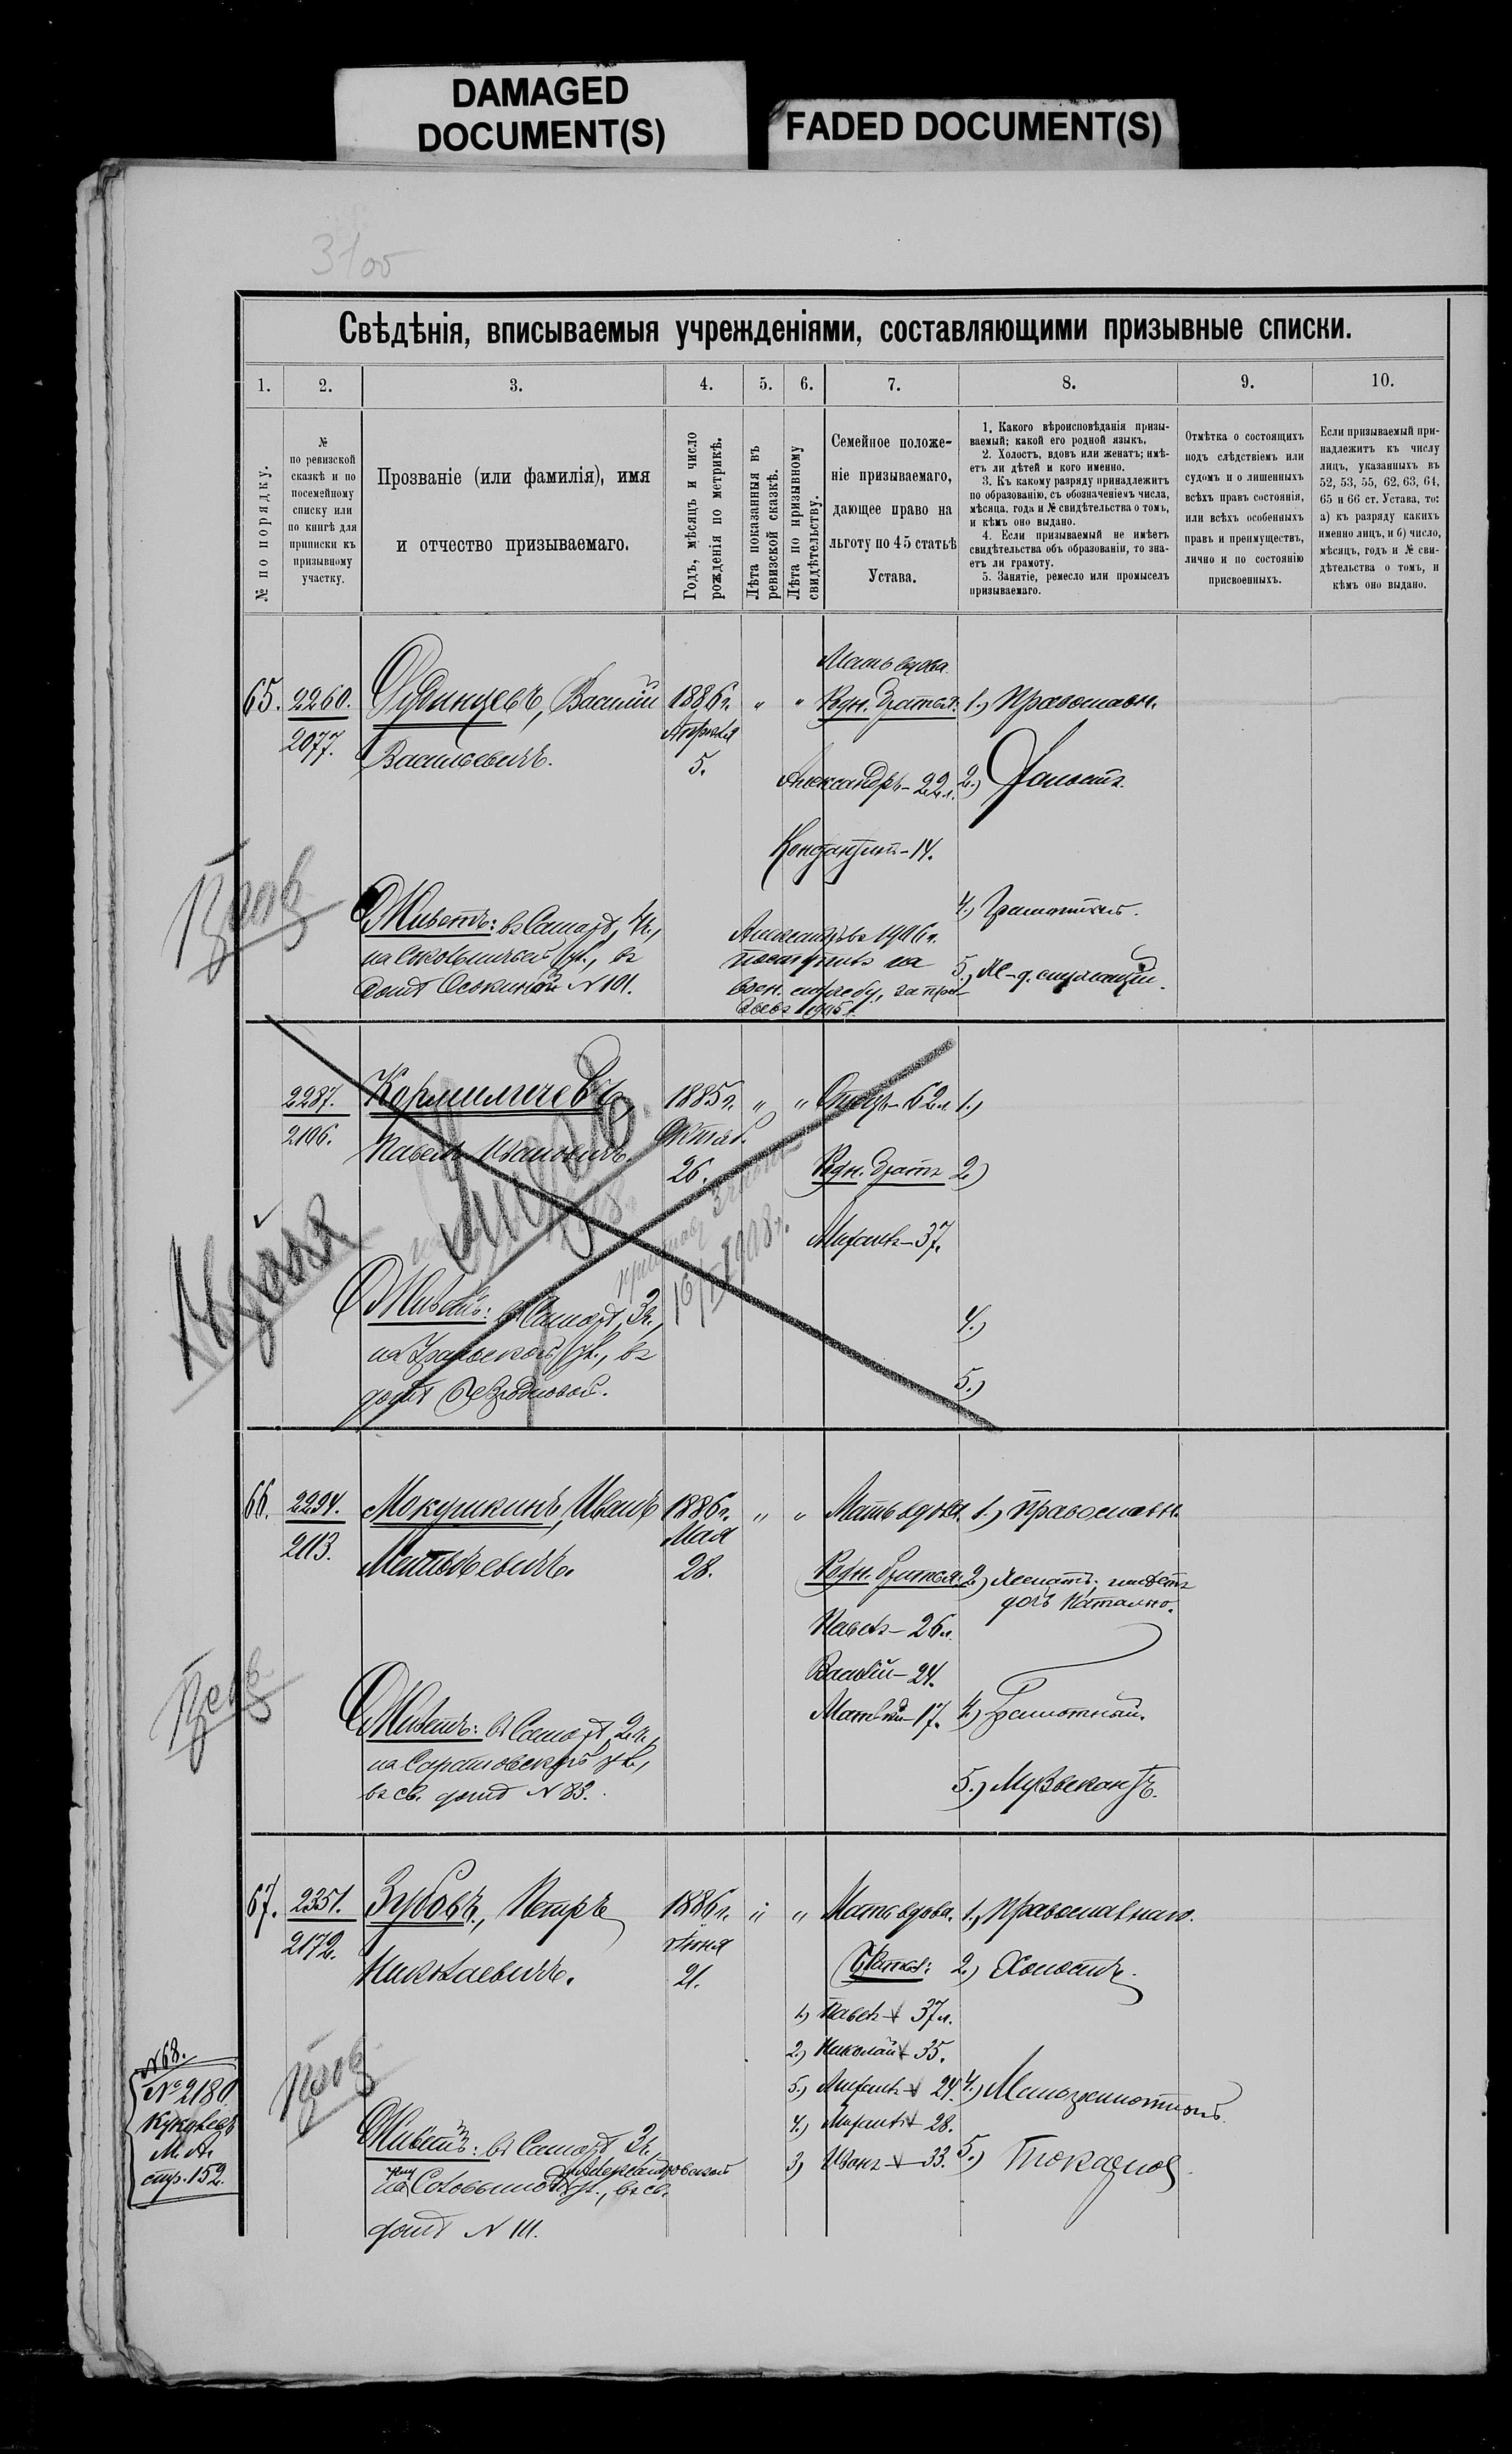 DAMAGED
DOCUMENT(S)
FADED DOCUMENT(S)
3100
Свѣдѣнія, вписываемыя учрежденіями, составляющими призывные списки.
1. 2. 3. 4. 5. 6. 7. 8. 9. 10.
№ по порядку.
№
по ревизской
сказкѣ и по
посемейному
списку или
по книгѣ для
приписки къ
призывному
участку.
Прозваніе (или фамилія), имя
и отчество призываемаго.
Годъ, мѣсяцъ и число
рожденія по метрикѣ.
Лѣта показанныя въ
ревизской сказкѣ.
Лѣта по призывному
свидѣтельству.
Семейное положе-
ніе призываемаго,
дающее право на
льготу по 45 статьѣ
Устава.
1. Какого вѣроисповѣданія призы-
ваемый; какой его родной языкъ.
2. Холостъ, вдовъ или женатъ; имѣ-
етъ ли дѣтей и кого именно.
3. Къ какому разряду принадлежитъ
по образованію, съ обозначеніемъ числа,
мѣсяца, года и № свидѣтельства о томъ,
и кѣмъ оно выдано.
4. Если призываемый не имѣетъ
свидѣтельства объ образованіи, то зна-
етъ ли грамоту.
5. Занятіе, ремесло или промыселъ
призываемаго.
Отмѣтка о состоящихъ
подъ слѣдствіемъ или
судомъ и о лишенныхъ
всѣхъ правъ состоянія,
или всѣхъ особенныхъ
правъ и преимуществъ,
лично и по состоянію
присвоенныхъ.
Если призываемый при-
надлежитъ къ числу
лицъ, указанныхъ въ
52, 53, 55, 62, 63, 64,
65 и 66 ст. Устава, то:
а) къ разряду какихъ
именно лицъ, и б) число,
мѣсяцъ, годъ и № сви-
дѣтельства о томъ, и
кѣмъ оно выдано.
Мать вдова.
65. 2260. Одинцевъ, Василій 1886г. " " Родн. братья: 1.) Православн.
2077. Васильевичъ. Апрѣля
5. Александръ - 22 л. 2.) Холостъ.
Константинъ - 14.
4.) Грамотный.
Живетъ: въ Самарѣ, 4ч.,
на Сокольничьей ул., въ
домѣ Осокиной № 101.
Александръ 1906 г.
поступилъ на
воен. службу, за призывъ 1905 г.
5.)
2287. Кормиличевъ, 1885г. " " Отецъ - 62 л. 1.)
2106. Павелъ Ивановичъ. Октяб.
26. Родн. братъ 2.)
Михаилъ - 37.
16/I 1908 г.
Живетъ: въ Самарѣ, 3ч., 4.)
на Уральской ул., въ
домѣ 5.)
66. 2294. Мокушкинъ, Иванъ 1886г. " " Мать вдова. 1.) Православн.
2113. Матвѣевичъ. Мая
28. Родн. братья: 2.) Женатъ; имѣетъ
дочь Наталію.
Павелъ - 26 л.
Василій - 24.
Матвѣй - 17. 4.) Грамотный.
Живетъ: въ Самарѣ, 2ч.,
на Саратовской ул.,
въ св. домѣ № 83.
5.) Музыкантъ.
67. 2351. Зубовъ, Петръ 1886г. " " Мать вдова. 1.) Православнаго.
2172. Николаевичъ. Іюня
21. Братья: 2.) Холостъ.
1.) Павелъ 37 л.
2.) Николай 35.
5.) Михаилъ 24. 4.) Малограмотный.
4.) Михаилъ 28.
3) Иванъ 33. 5.) Токарной
№68.
№ 2180
М. А.
стр. 152.
Живетъ: въ Самарѣ, 3ч.,
уг. Александровской
на Соловьиной ул., въ св.
домѣ № 111.